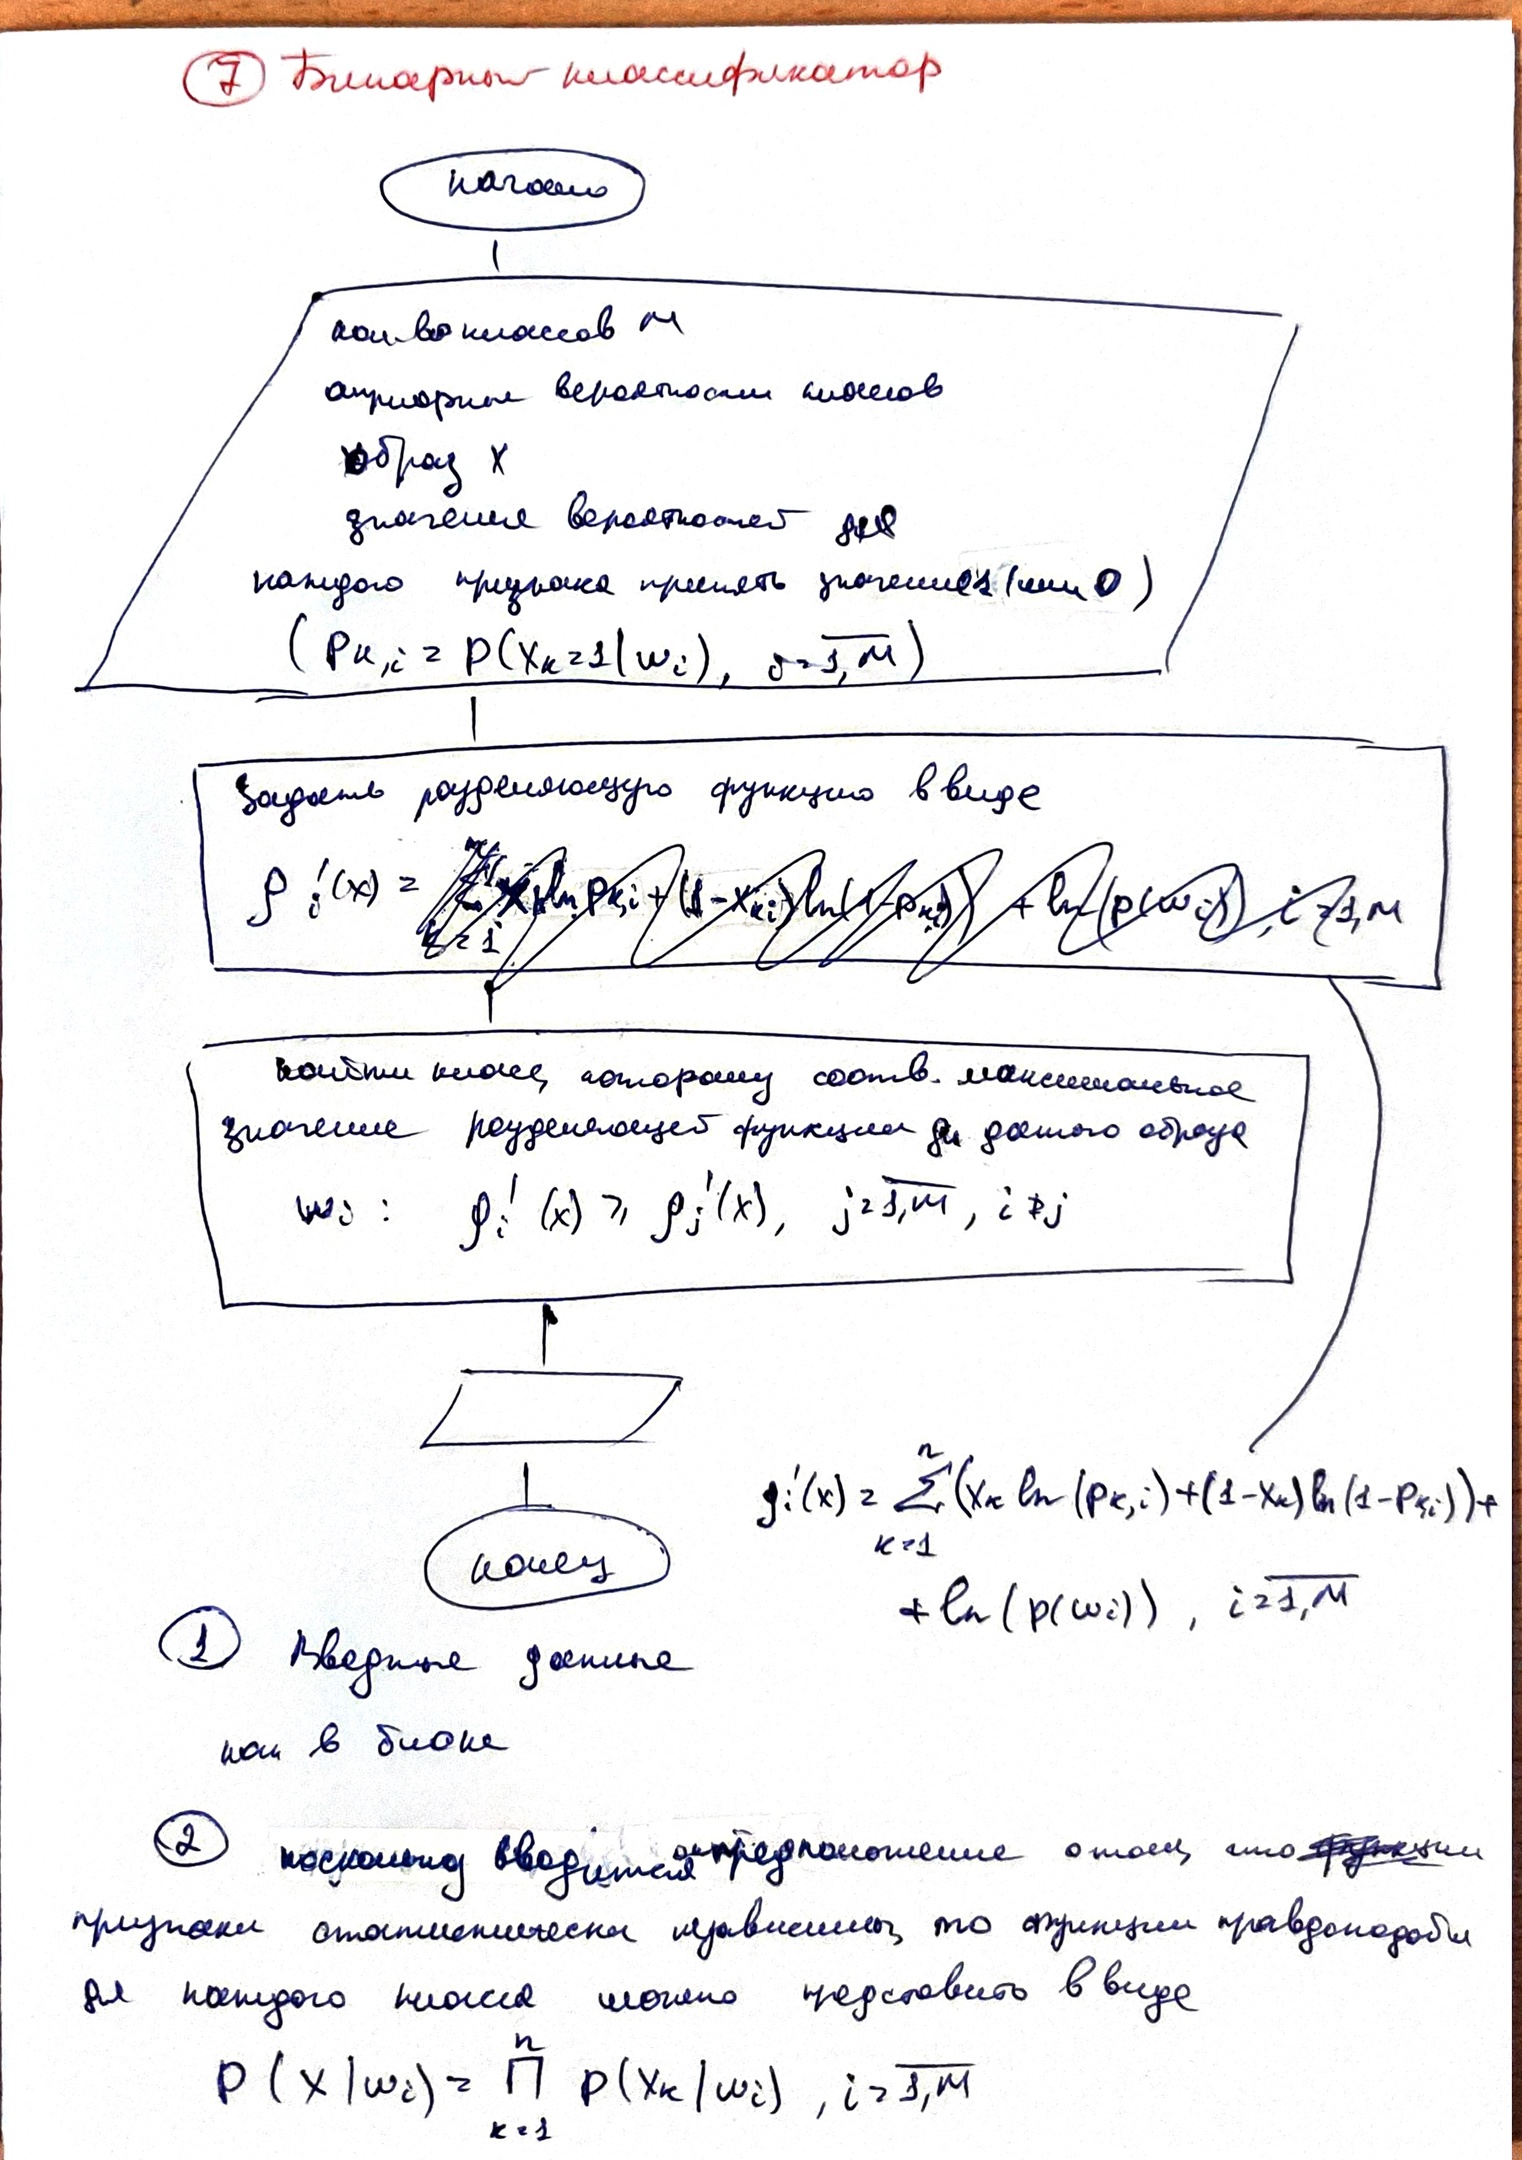 7 Бинарный классификатор
начало
кол-во классов M
априорные вероятности классов
образ X
значения вероятностей для
каждого признака принять значение 1 (или 0)
(Pк,i = P(Xк=1|wi), i=1,M)
Задать разделяющую функцию в виде
gi'(x) =
найти класс, которому соотв. максимальное
значение разделяющей функции для данного образа
wi: gi'(x) ⩾ gj'(x), j=1,M, i≠j
конец
gi'(x) = Σ n к=1 (Xк ln (Pк,i) + (1-Xк) ln (1-Pк,i)) +
+ ln (P(wi)), i=1,M
1 Вводные данные
как в блоке
2 поскольку вводится предположение о том, что
признаки статистически независимы, то функции правдоподобия
для каждого класса можно представить в виде
P(X|wi) = Π n к=1 P(Xк|wi), i=1,M